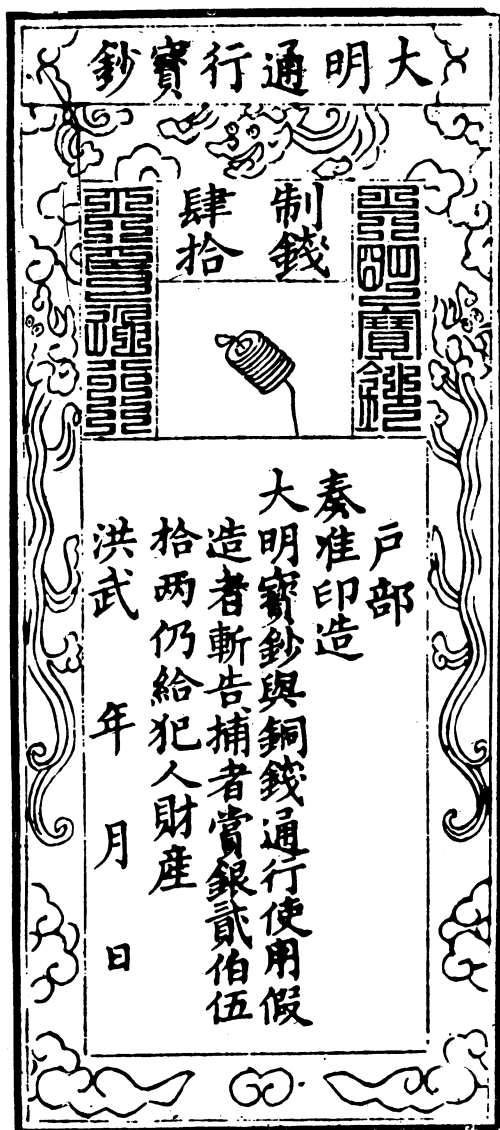 大明通行寶鈔
大明寶鈔
制錢
肆拾
天下通行
戶部
奏准印造
大明寶鈔與銅錢通行使用假
造者斬告捕者賞銀貳伯伍
拾两仍給犯人財産
洪武 年 月 日